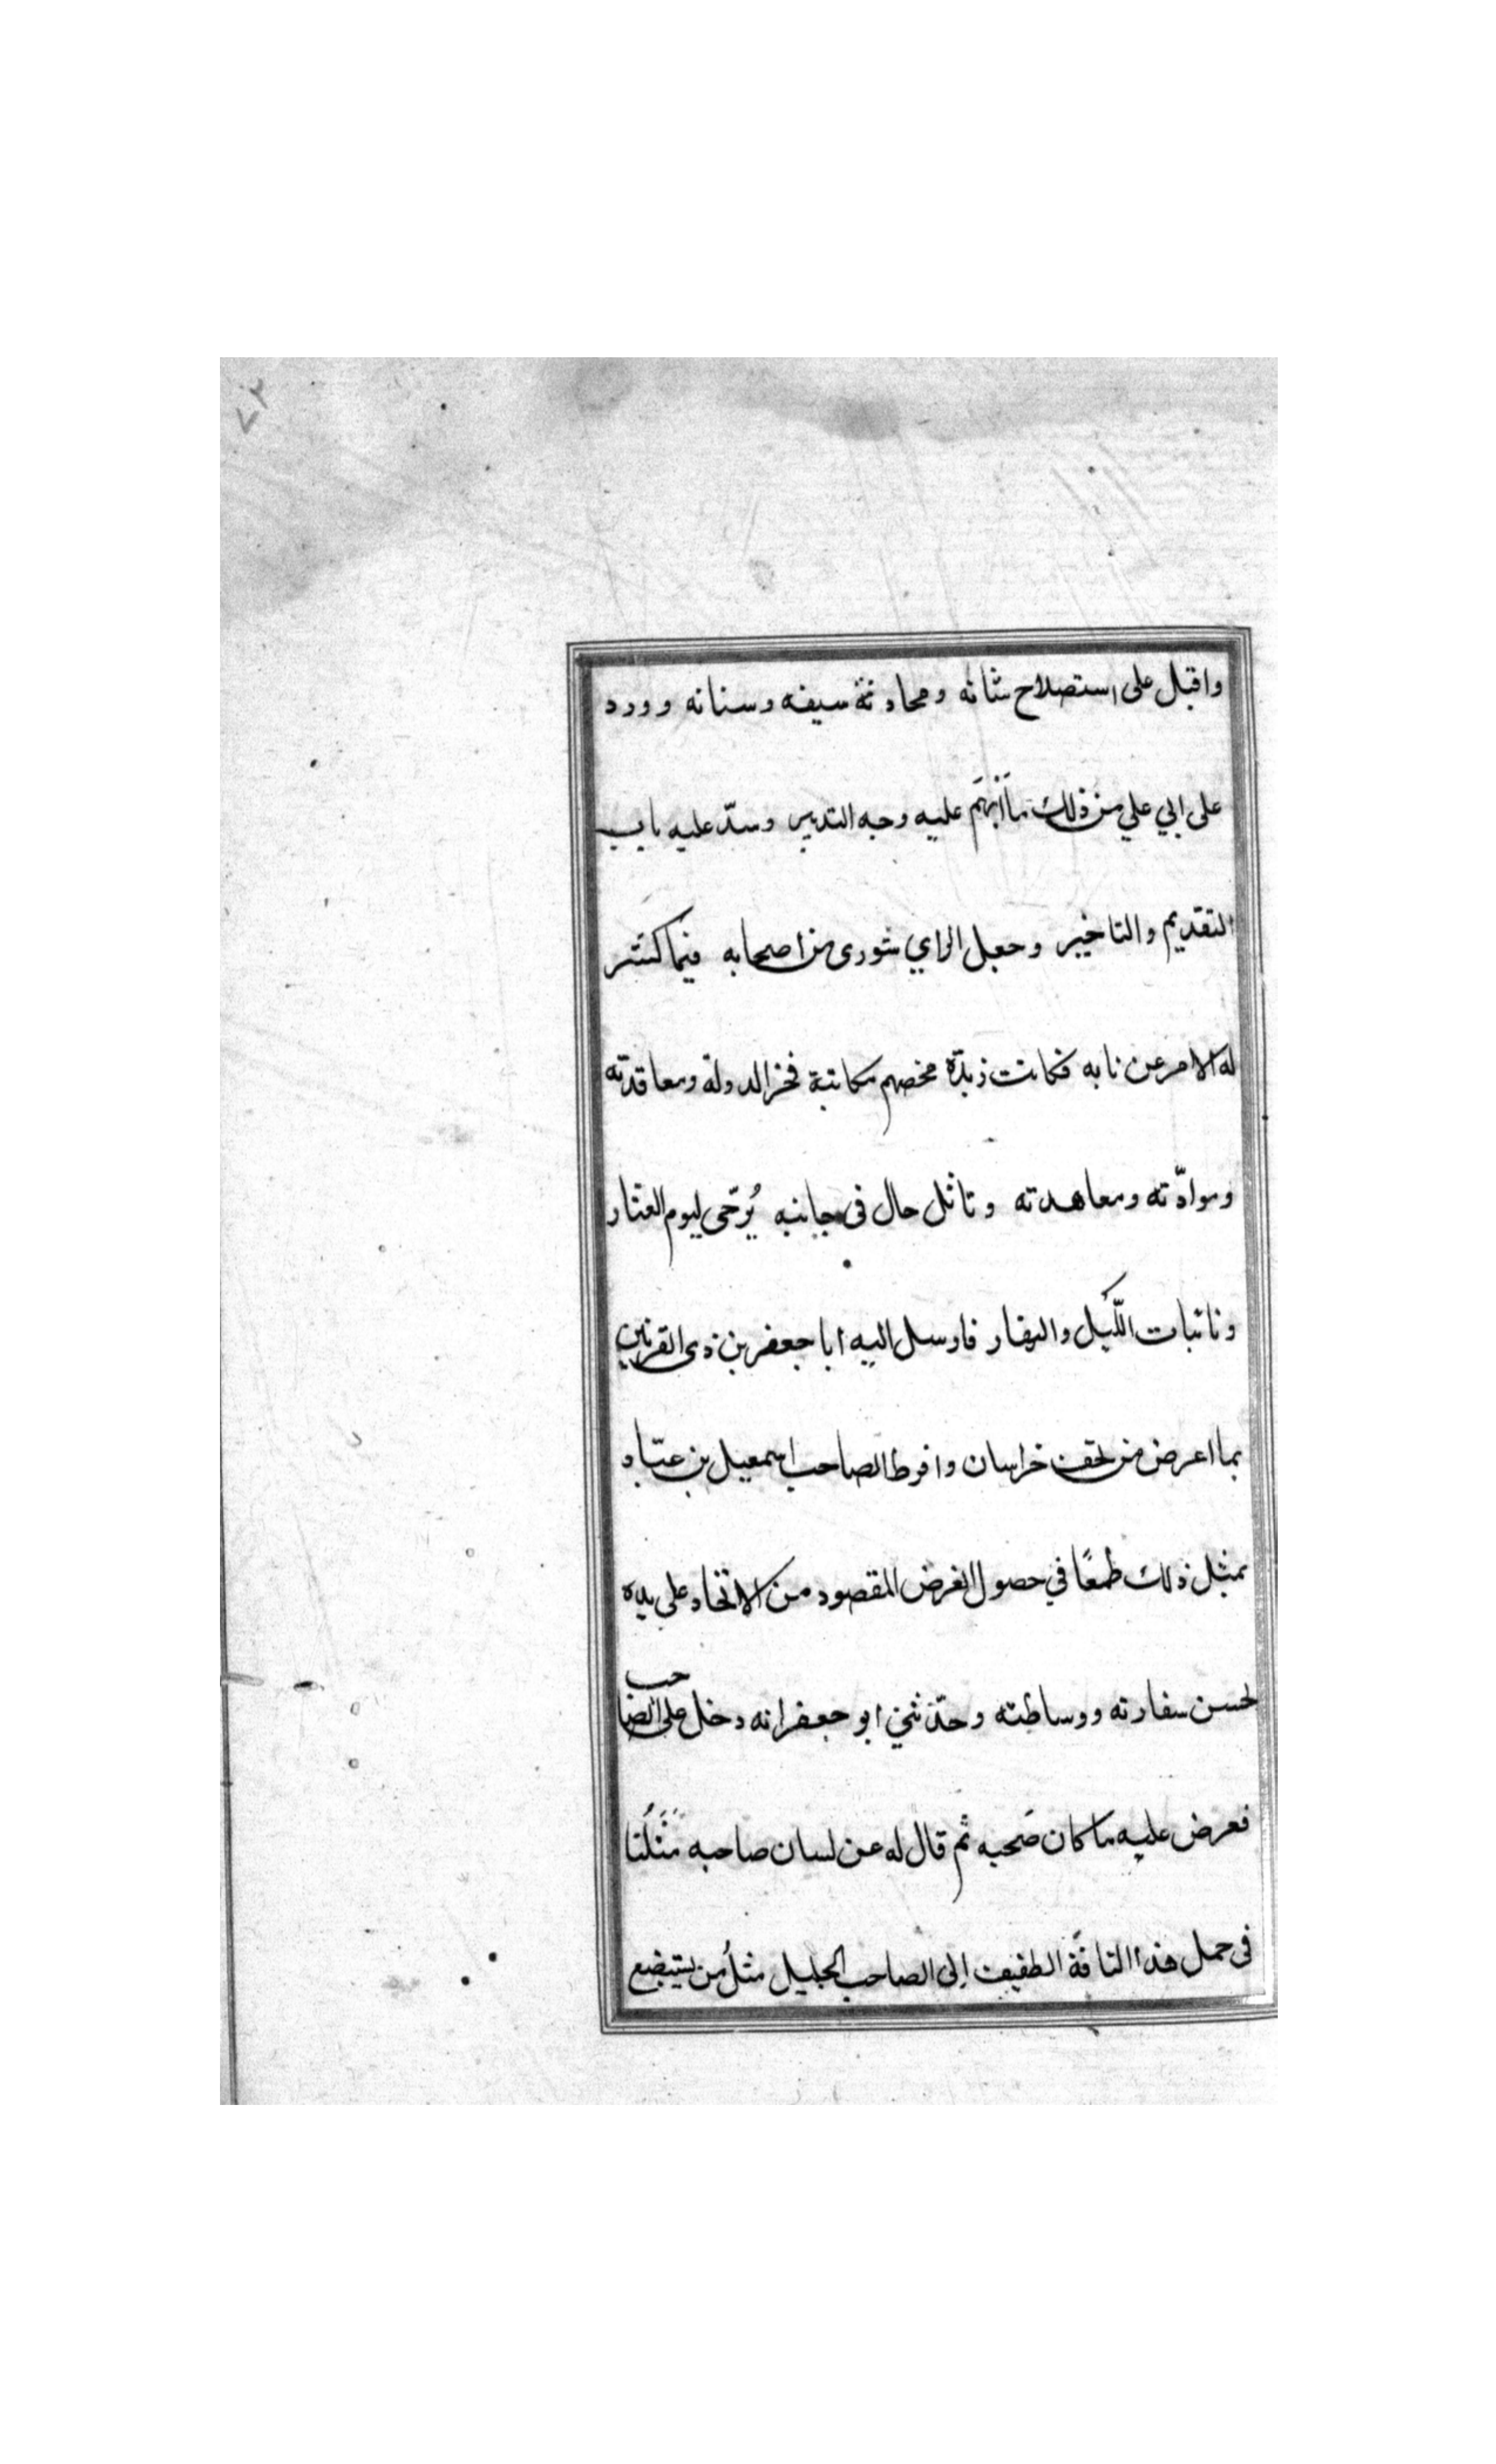 ٧٢
واقبل على استصلاح شانه ومحادثة سيفه وسنانه وورد
على ابي علي من ذلك ما اَبْهَم عليه وجه التدبير وسدّ عليه باب
التقديم والتاخير وجعل الراي شورى من اصحابه فيما كشر
له الامر عن نابه فكانت زبدة مخضهم مكاتبة فخر الدولة ومعاقدته
وموادّته ومعاهدته وتاثل حال في جانبه يُرَجّى ليوم العثار
ونائبات اللّيل والنهار فارسل اليه ابا جعفر بن ذى القرنين
بما اعرض من تحف خراسان وافرط الصاحب اسمعيل بن عبّاد
بمثل ذلك طمعًا في حصول الغرض المقصود من الاتحاد على يده
لحسن سفارته ووساطته وحدّثني ابو جعفر انه دخل على الصاحب
فعرض عليه ما كان صَحبه ثم قال له عن لسان صاحبه مَثَلُنا
في حمل هذا التافه الطفيف إلى الصاحب الجليل مثلُ من يستبضع